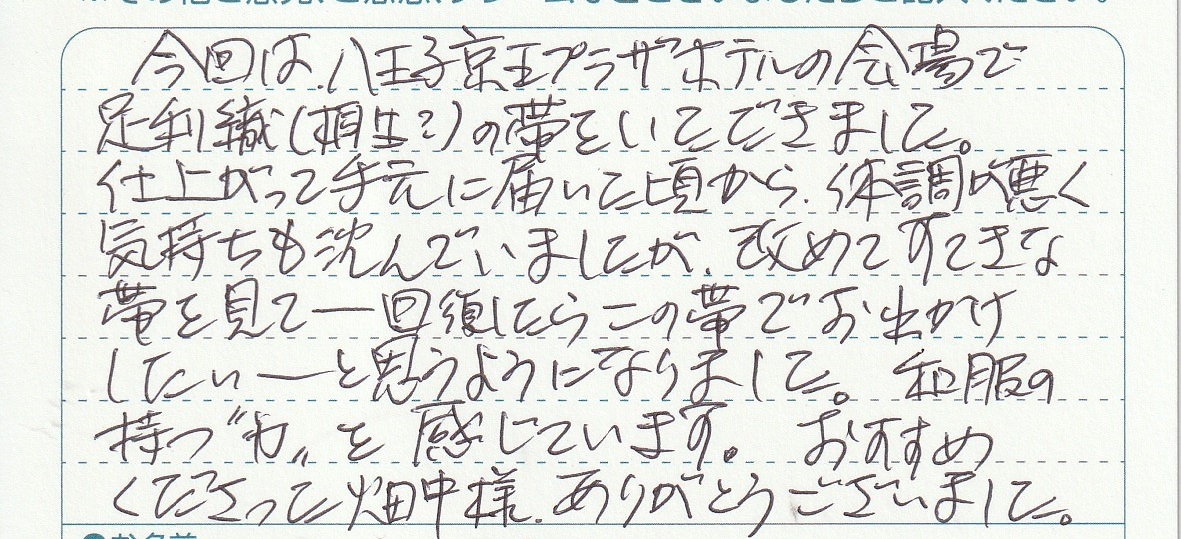 今回は、八王子京王プラザホテルの会場で
足利織(相生?)の帯をいただきました。
仕上がって手元に届いた頃から、体調が悪く
気持ちも沈んでいましたが、改めてすてきな
帯を見て――回復したらこの帯でお出かけ
したい――と思うようになりました。和服の
持つ〝力〟を感じています。おすすめ
くださった畑中様、ありがとうございました。